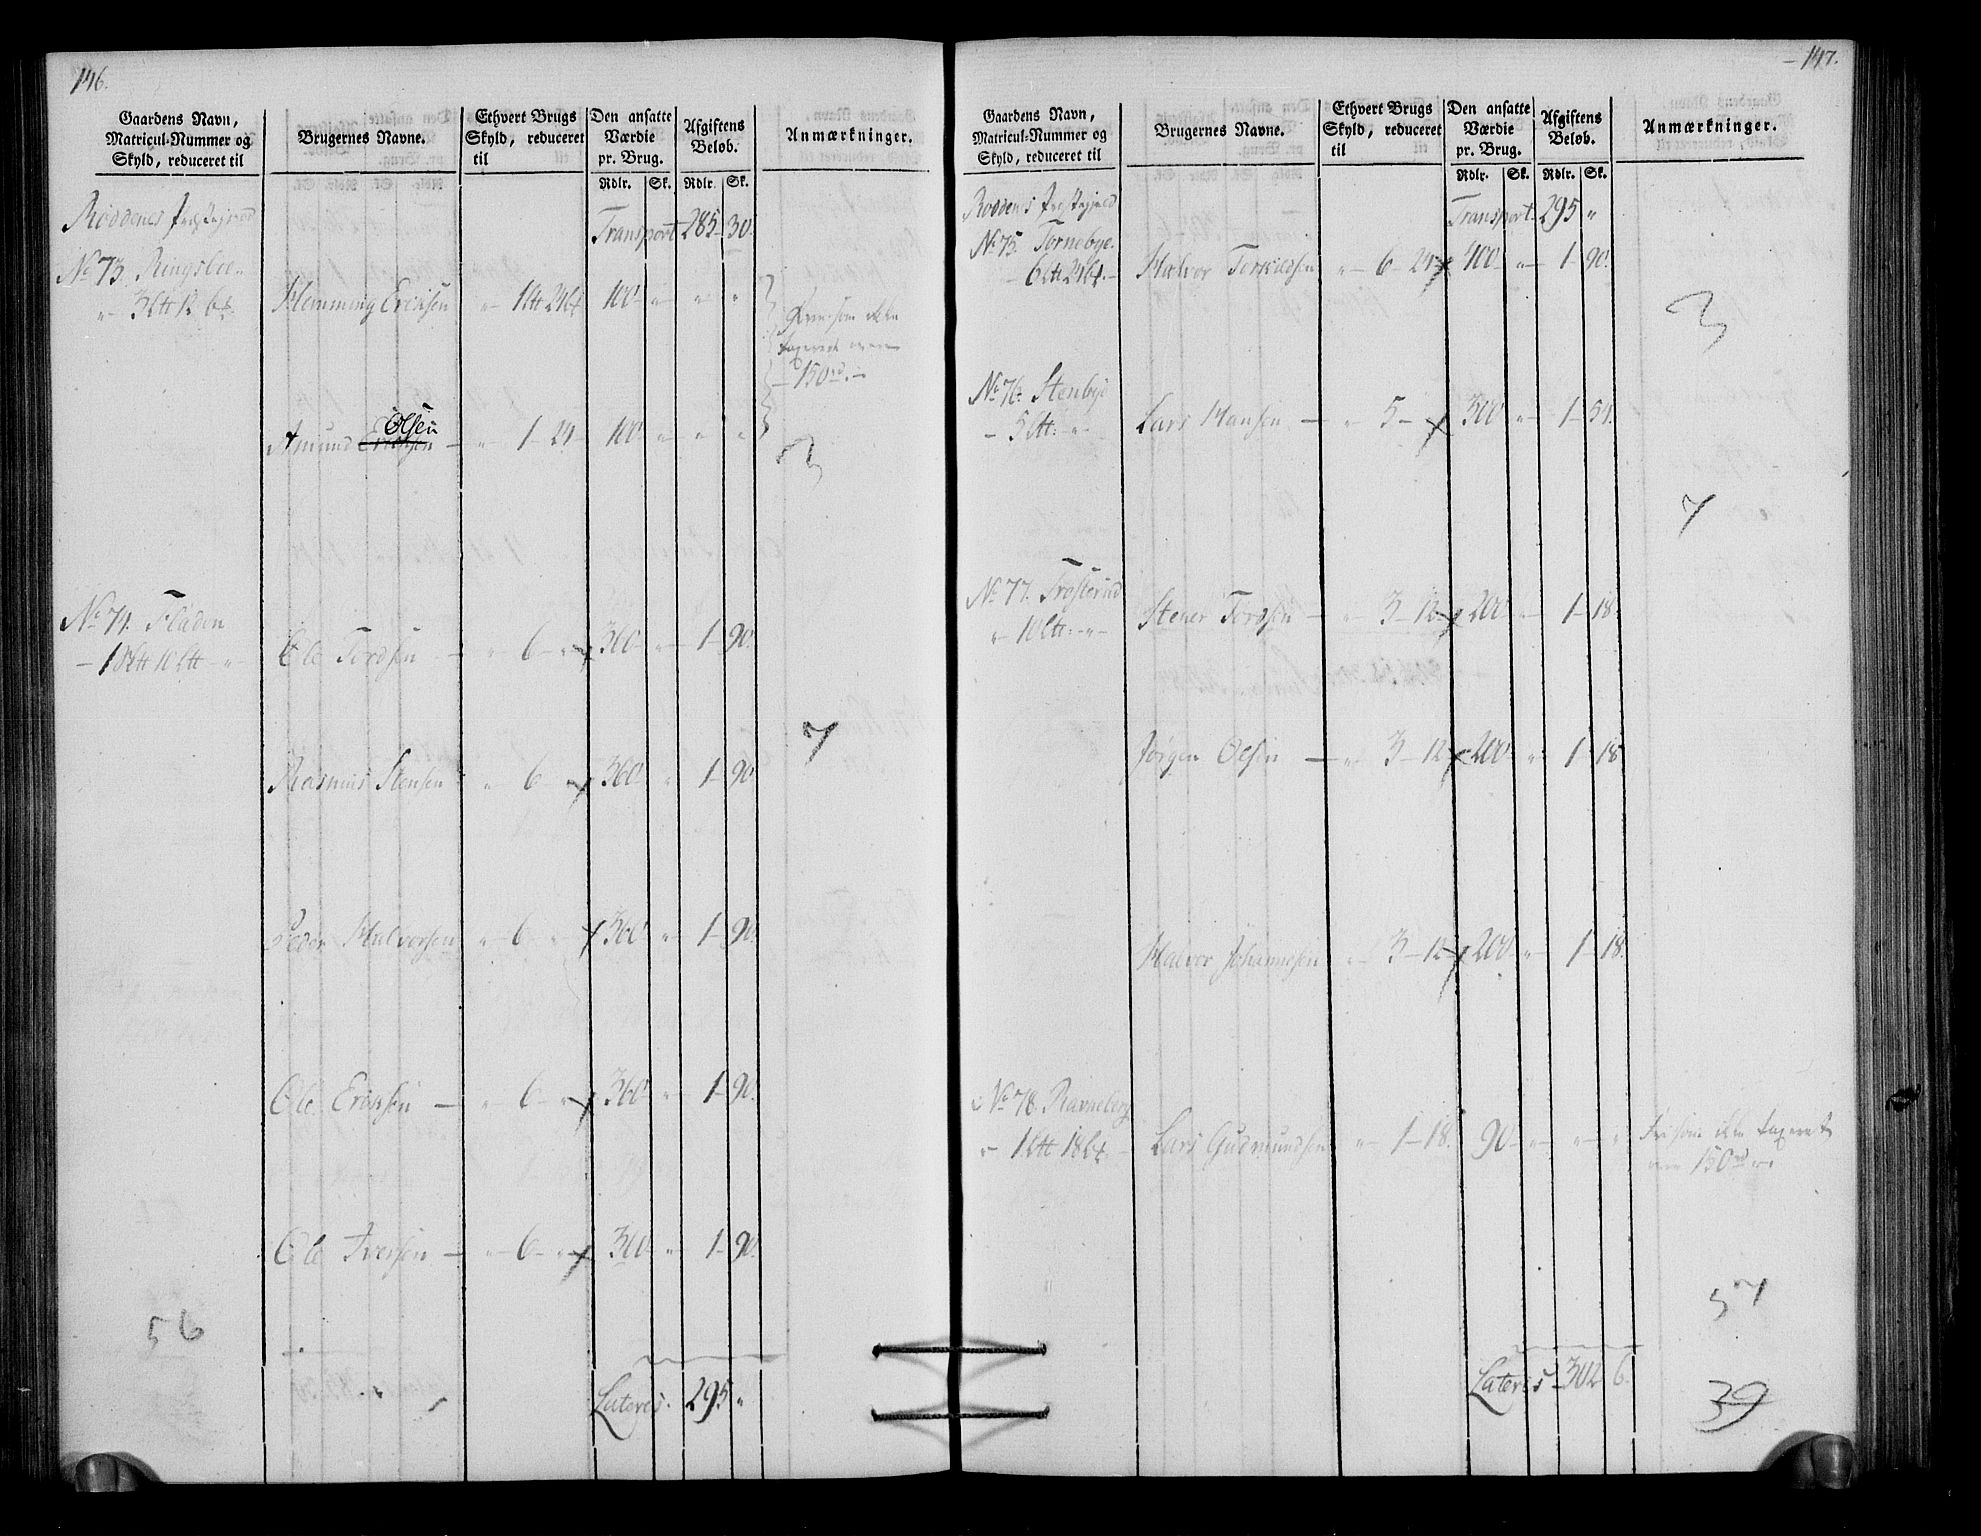 146.
Gaardens Navn, Matricul-Nummer og Skyld, reduceret til
Brugernes Navne.
Ethvert Brugs Skyld, reduceret til
Den ansatte Værdie pr. Brug.
Afgiftens Beløb.
Anmærkninger.
Rdlr. Sk. Rdlr. Sk.
Røddenes Præstegield Transport 285 30
No 73. Ringsboe
" 3 Ltt 12 Hemming Eriksen " 1 Ltt 24 100 " " "
som ikke
taxeret over
150 rd.
Amund Eriksen Olsen " 1 24 100 " " "
No 74. Fladen
1 10 Ltt " Ole Tordsen " 6 " 360 " 1 90.
Rasmus Stensen " 6 " 360 " 1 90.
7
Peder Halvorsen " 6 " 360 " 1 90.
Ole Eriksen " 6 " 360 " 1 90.
Ole Iversen " 6 " 360 " 1 90.
56
Lateres. 295 "
147.
Gaardens Navn, Matricul-Nummer og Skyld, reduceret til
Brugernes Navne.
Ethvert Brugs Skyld, reduceret til
Den ansatte Værdie pr. Brug.
Afgiftens Beløb.
Anmærkninger.
Rdlr. Sk. Rdlr. Sk.
Røddenes Præstegield Transport 295 "
No 75. Tornebye.
6 Ltt 24 Halvor Torkildsen " 6 24 400 " 1 90.
3
No 76. Stenbye
5 Ltt " Lars Hansen " 5 300 " 1 54.
7
No 77. Trosterud
" 10 Ltt " Stener Tordsen " 3 12 200 " 1 18
Jørgen Olsen " 3 12 200 " 1 18
Halvor Johannesen " 3 12 200 " 1 18.
No 78. Ravneberg
" 1 Ltt 18 Lars Gudmundsen " 1 18. 90 " " " Fri som ikke taxeret
over 150 rd
57
Lateres 302 6.
39